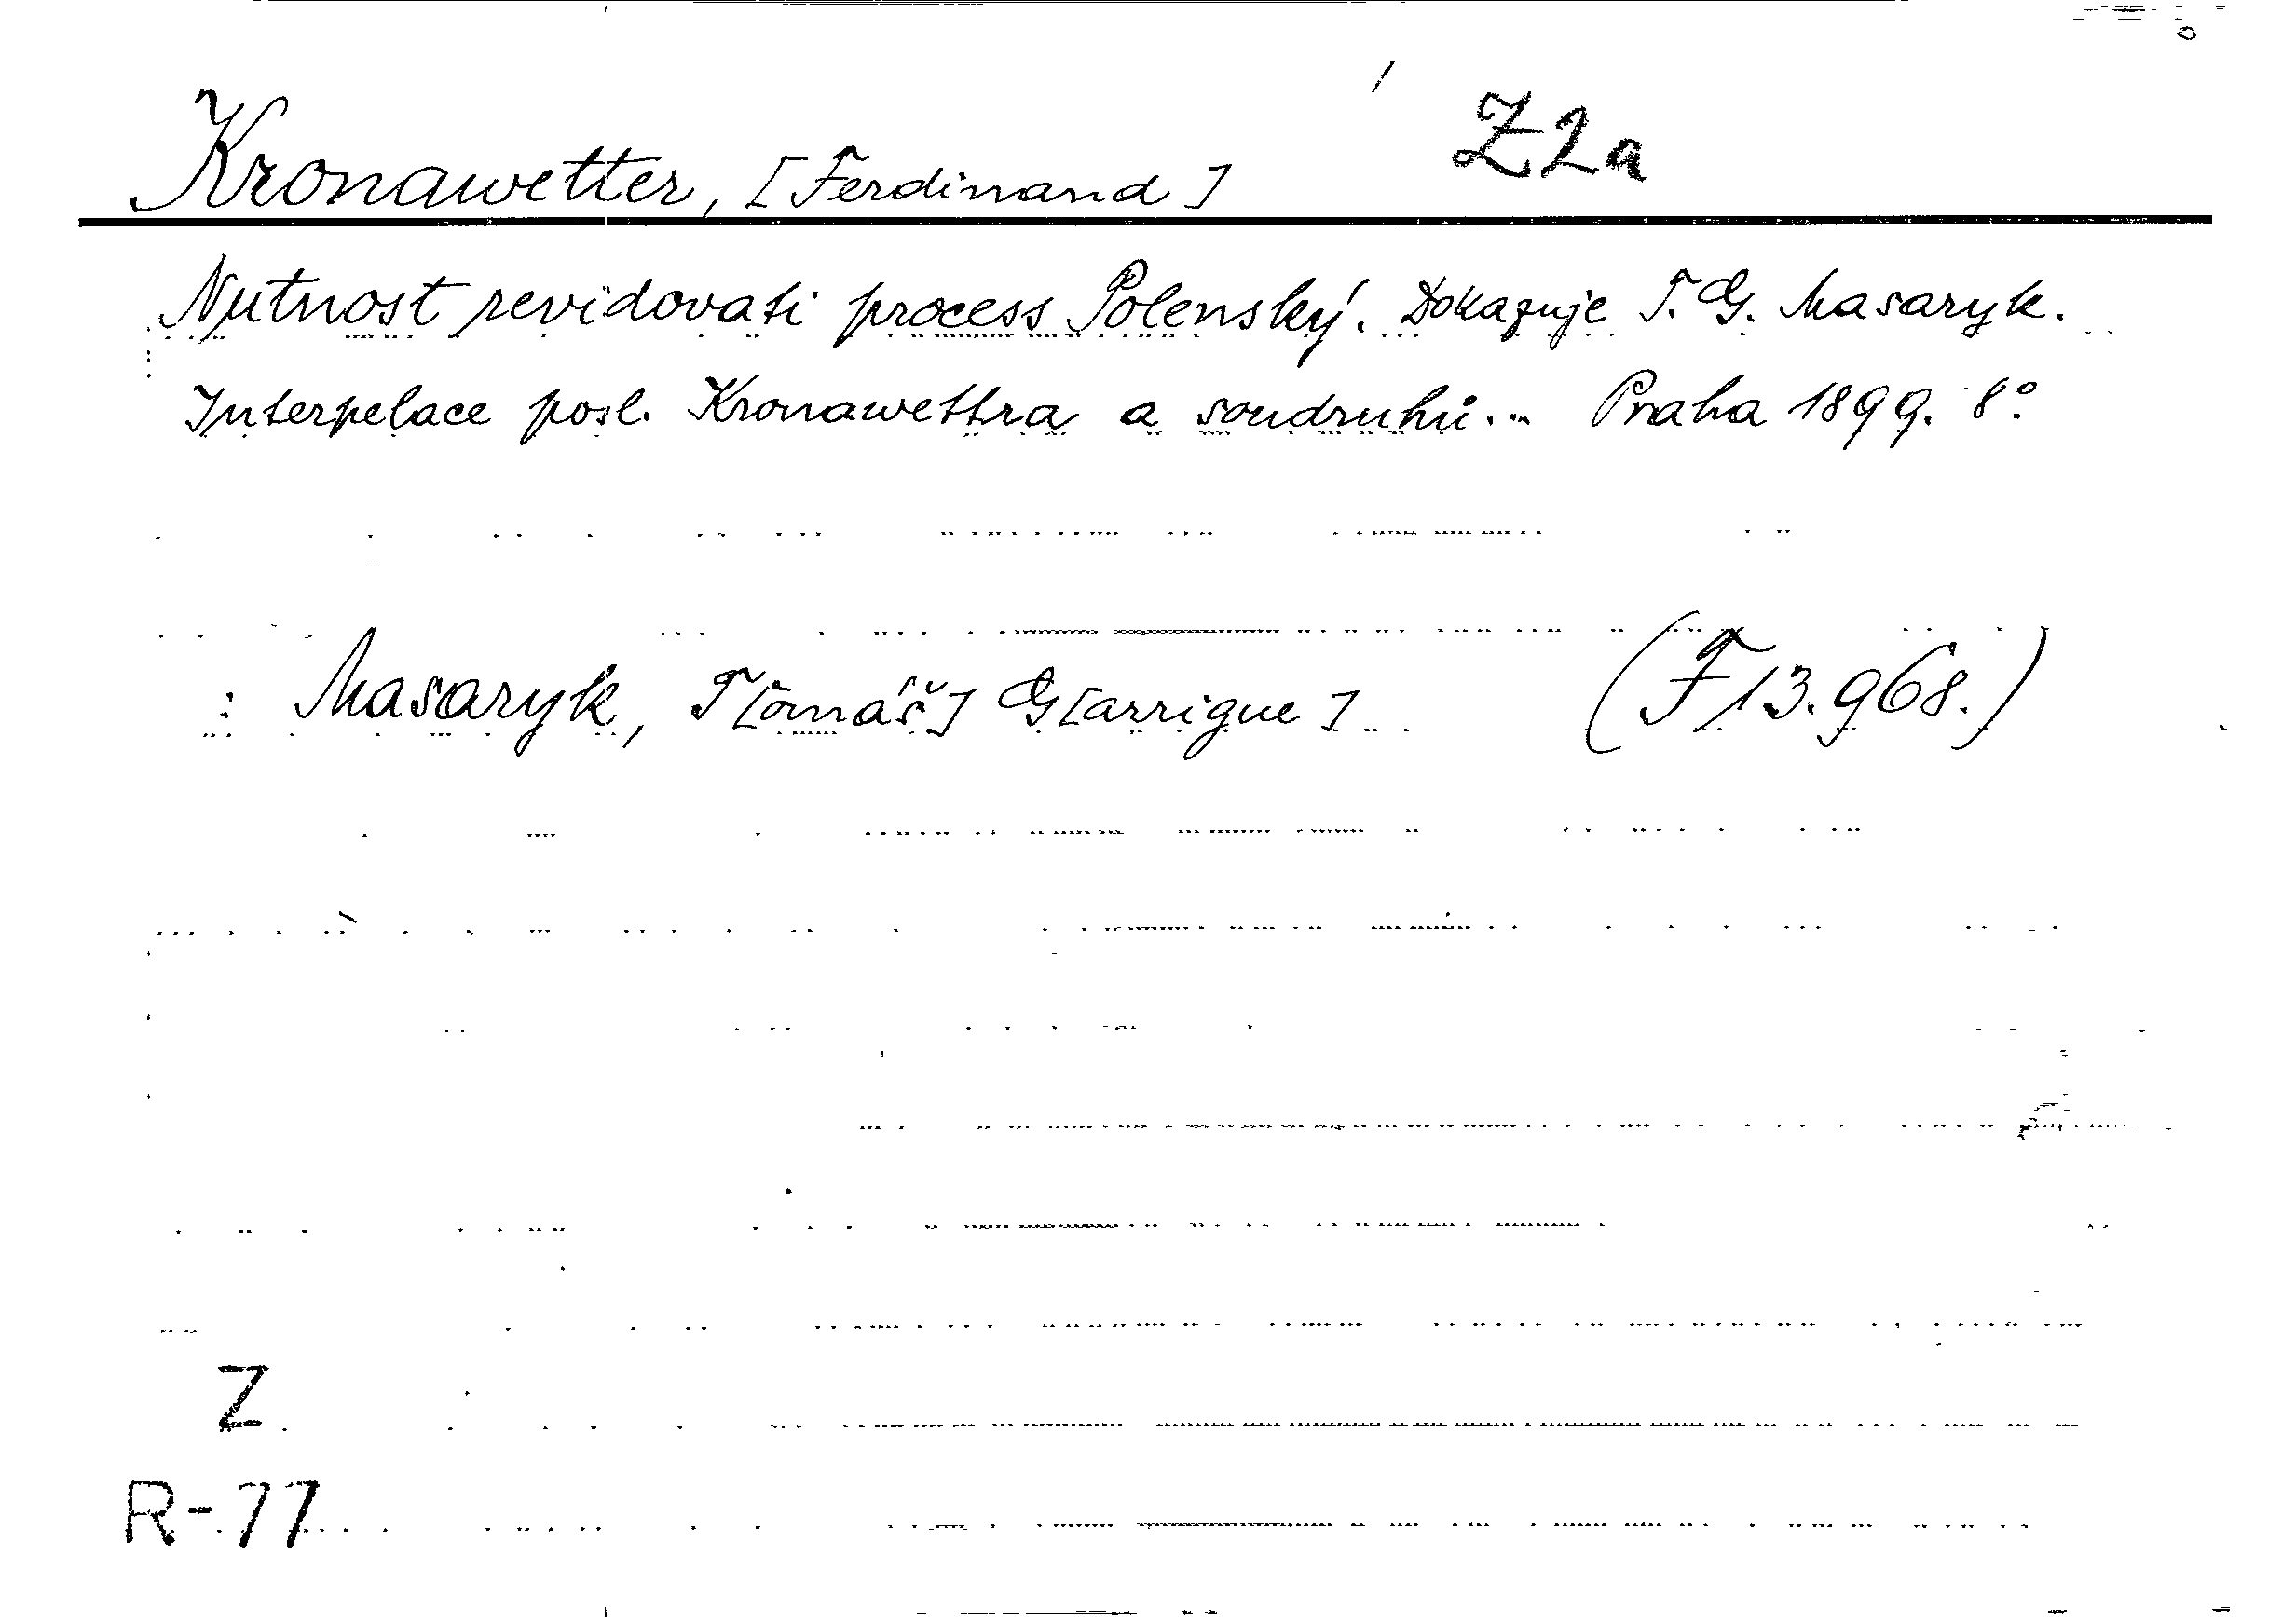 Kronawetter, [Ferdinand] Z2a
Nutnost revidovati process Polenský. Dokazuje T. G. Masaryk.
Interpelace posl. Kronawettra a soudruhů... Praha 1899. 8°
: Masaryk, T[omáš] G[arrigue] (F13.968.)
Z
R-77